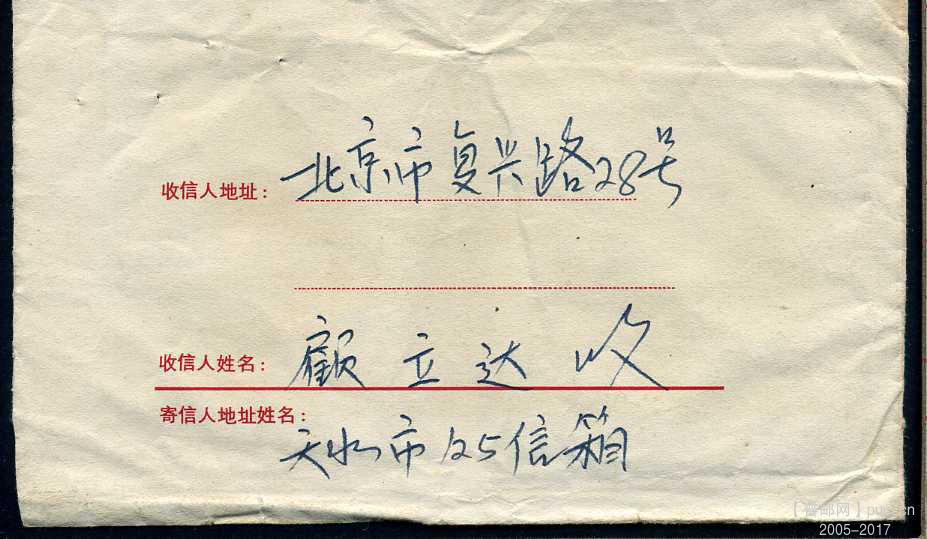 收信人地址: 北京市复兴路28号
收信人姓名: 顧立达 收
寄信人地址姓名:
天水市125信箱
2005-2017